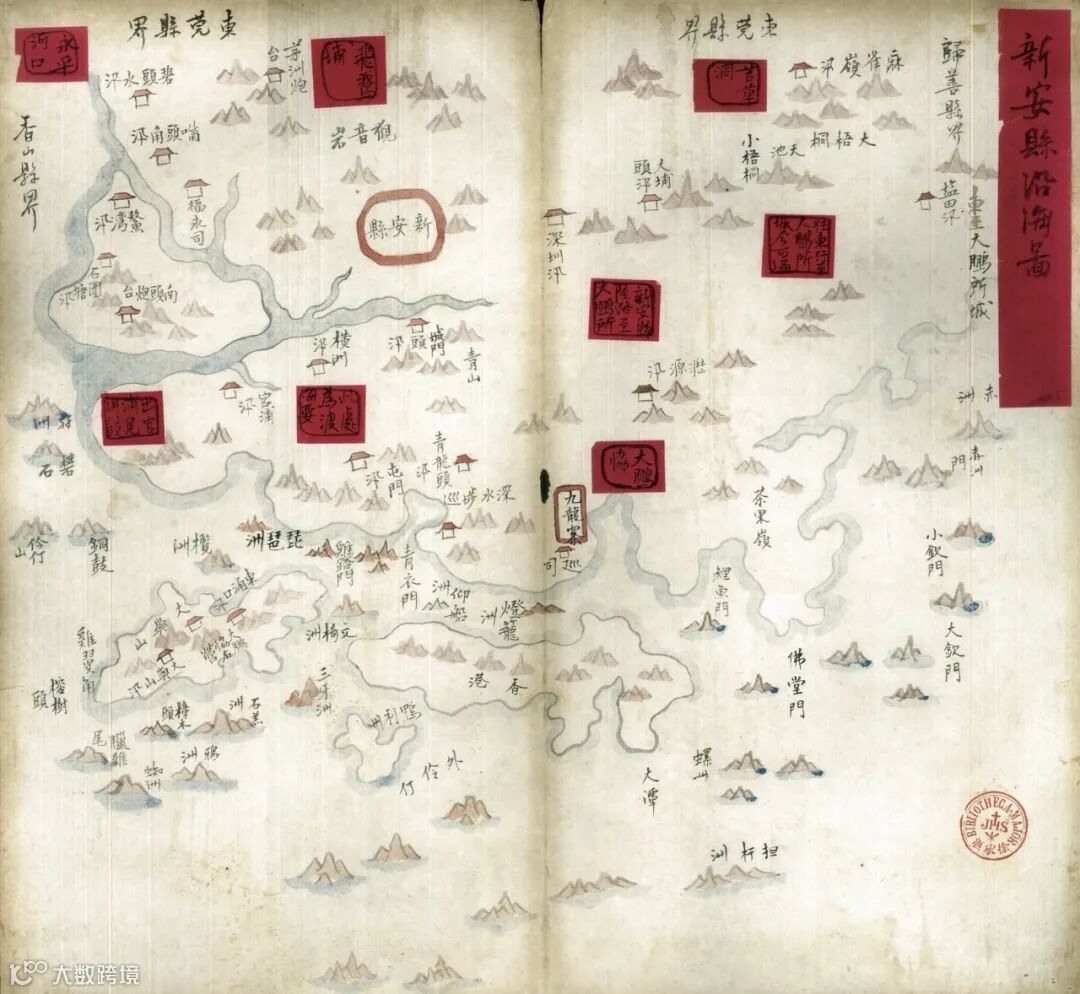 新安縣沿海畺
歸善縣界
東至大鵬所城
東莞縣界
苦草洞
麻雀嶺汛
大梧桐
天池
小梧桐
大埔頭汛
鹽田汛
深圳汛
新安縣陸路至大鵬所
瀝源汛
大鵬協
九龍寨
巡司
茶果嶺
鯉魚門
赤洲
赤洲門
小欽門
大欽門
佛堂門
螺洲
大潭
担杆洲
東莞縣界
永平河口
碧頭水汛
茅洲炮台
嘴頭角汛
觀音岩
香山縣界
鰲灣汛
福永司
新安縣
石圍塘汛
南頭炮台
橫洲汛
城門頭汛
青山
官涌汛
此處為渡
屯門汛
青龍頭汛
深水埗巡
琵琶洲
雞踏門
青衣門
仰船洲
燈籠洲
香港
伶仃山
銅鼓
檀洲
東涌口汛
大嶼山
大嶼山汛
大鵬協右營
交椅洲
雞翼角
榕樹頭
三牙洲
鴨利洲
石羔洲
樟木頭
鴉洲
蜘洲
臘雞尾
外伶仃
BIBLIOTHECA·MAJOR
大数跨境